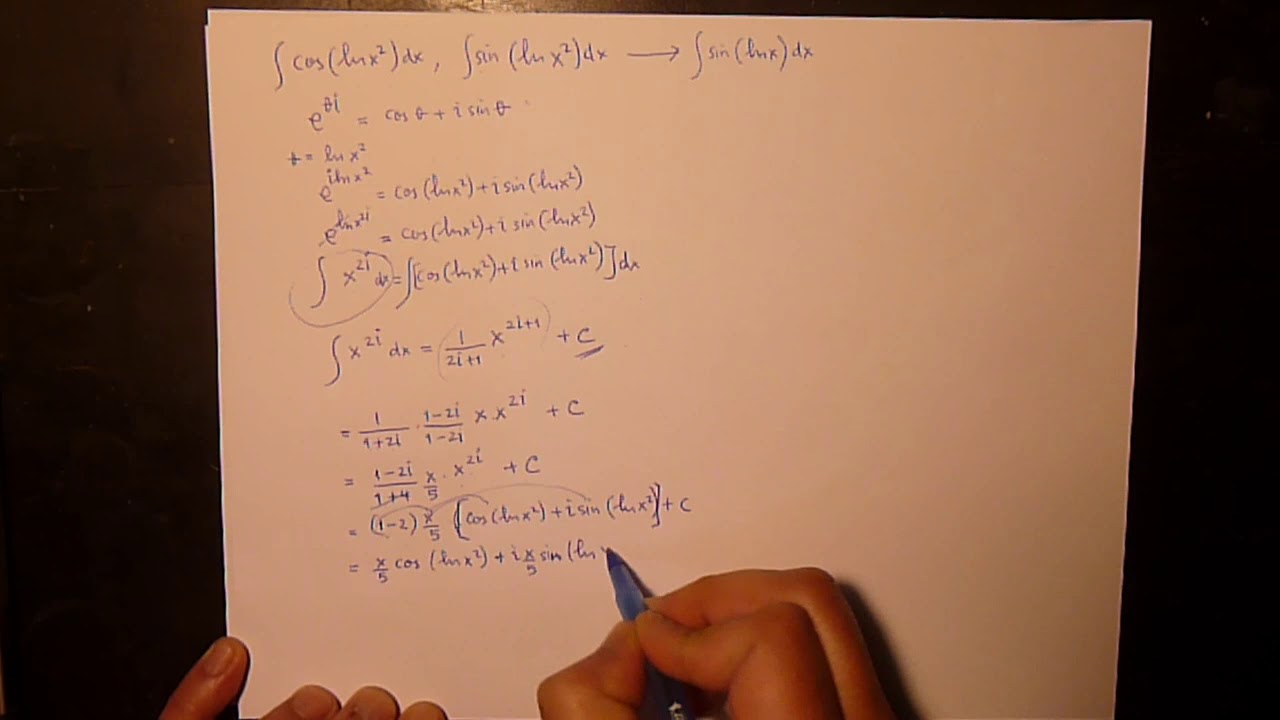 ∫cos(lnx²)dx, ∫sin(lnx²)dx → ∫sin(lnx)dx
e^θi = cosθ + i sinθ
t = lnx²
e^ilnx² = cos(lnx²)+i sin(lnx²)
e^lnx^2i = cos(lnx²)+i sin(lnx²)
∫x^2i dx = ∫[cos(lnx²)+i sin(lnx²)]dx
∫x^2i dx = 1/(2i+1) x^(2i+1) + C
= 1/(1+2i) · (1-2i)/(1-2i) x.x^2i + C
= (1-2i)/(1+4) x/5 · x^2i + C
= (1-2) x/5 [cos(lnx²)+i sin(lnx²]+C
= x/5 cos(lnx²)+i x/5 sin(ln